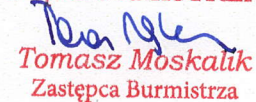 Tomasz Moskalik
Zastępca Burmistrza